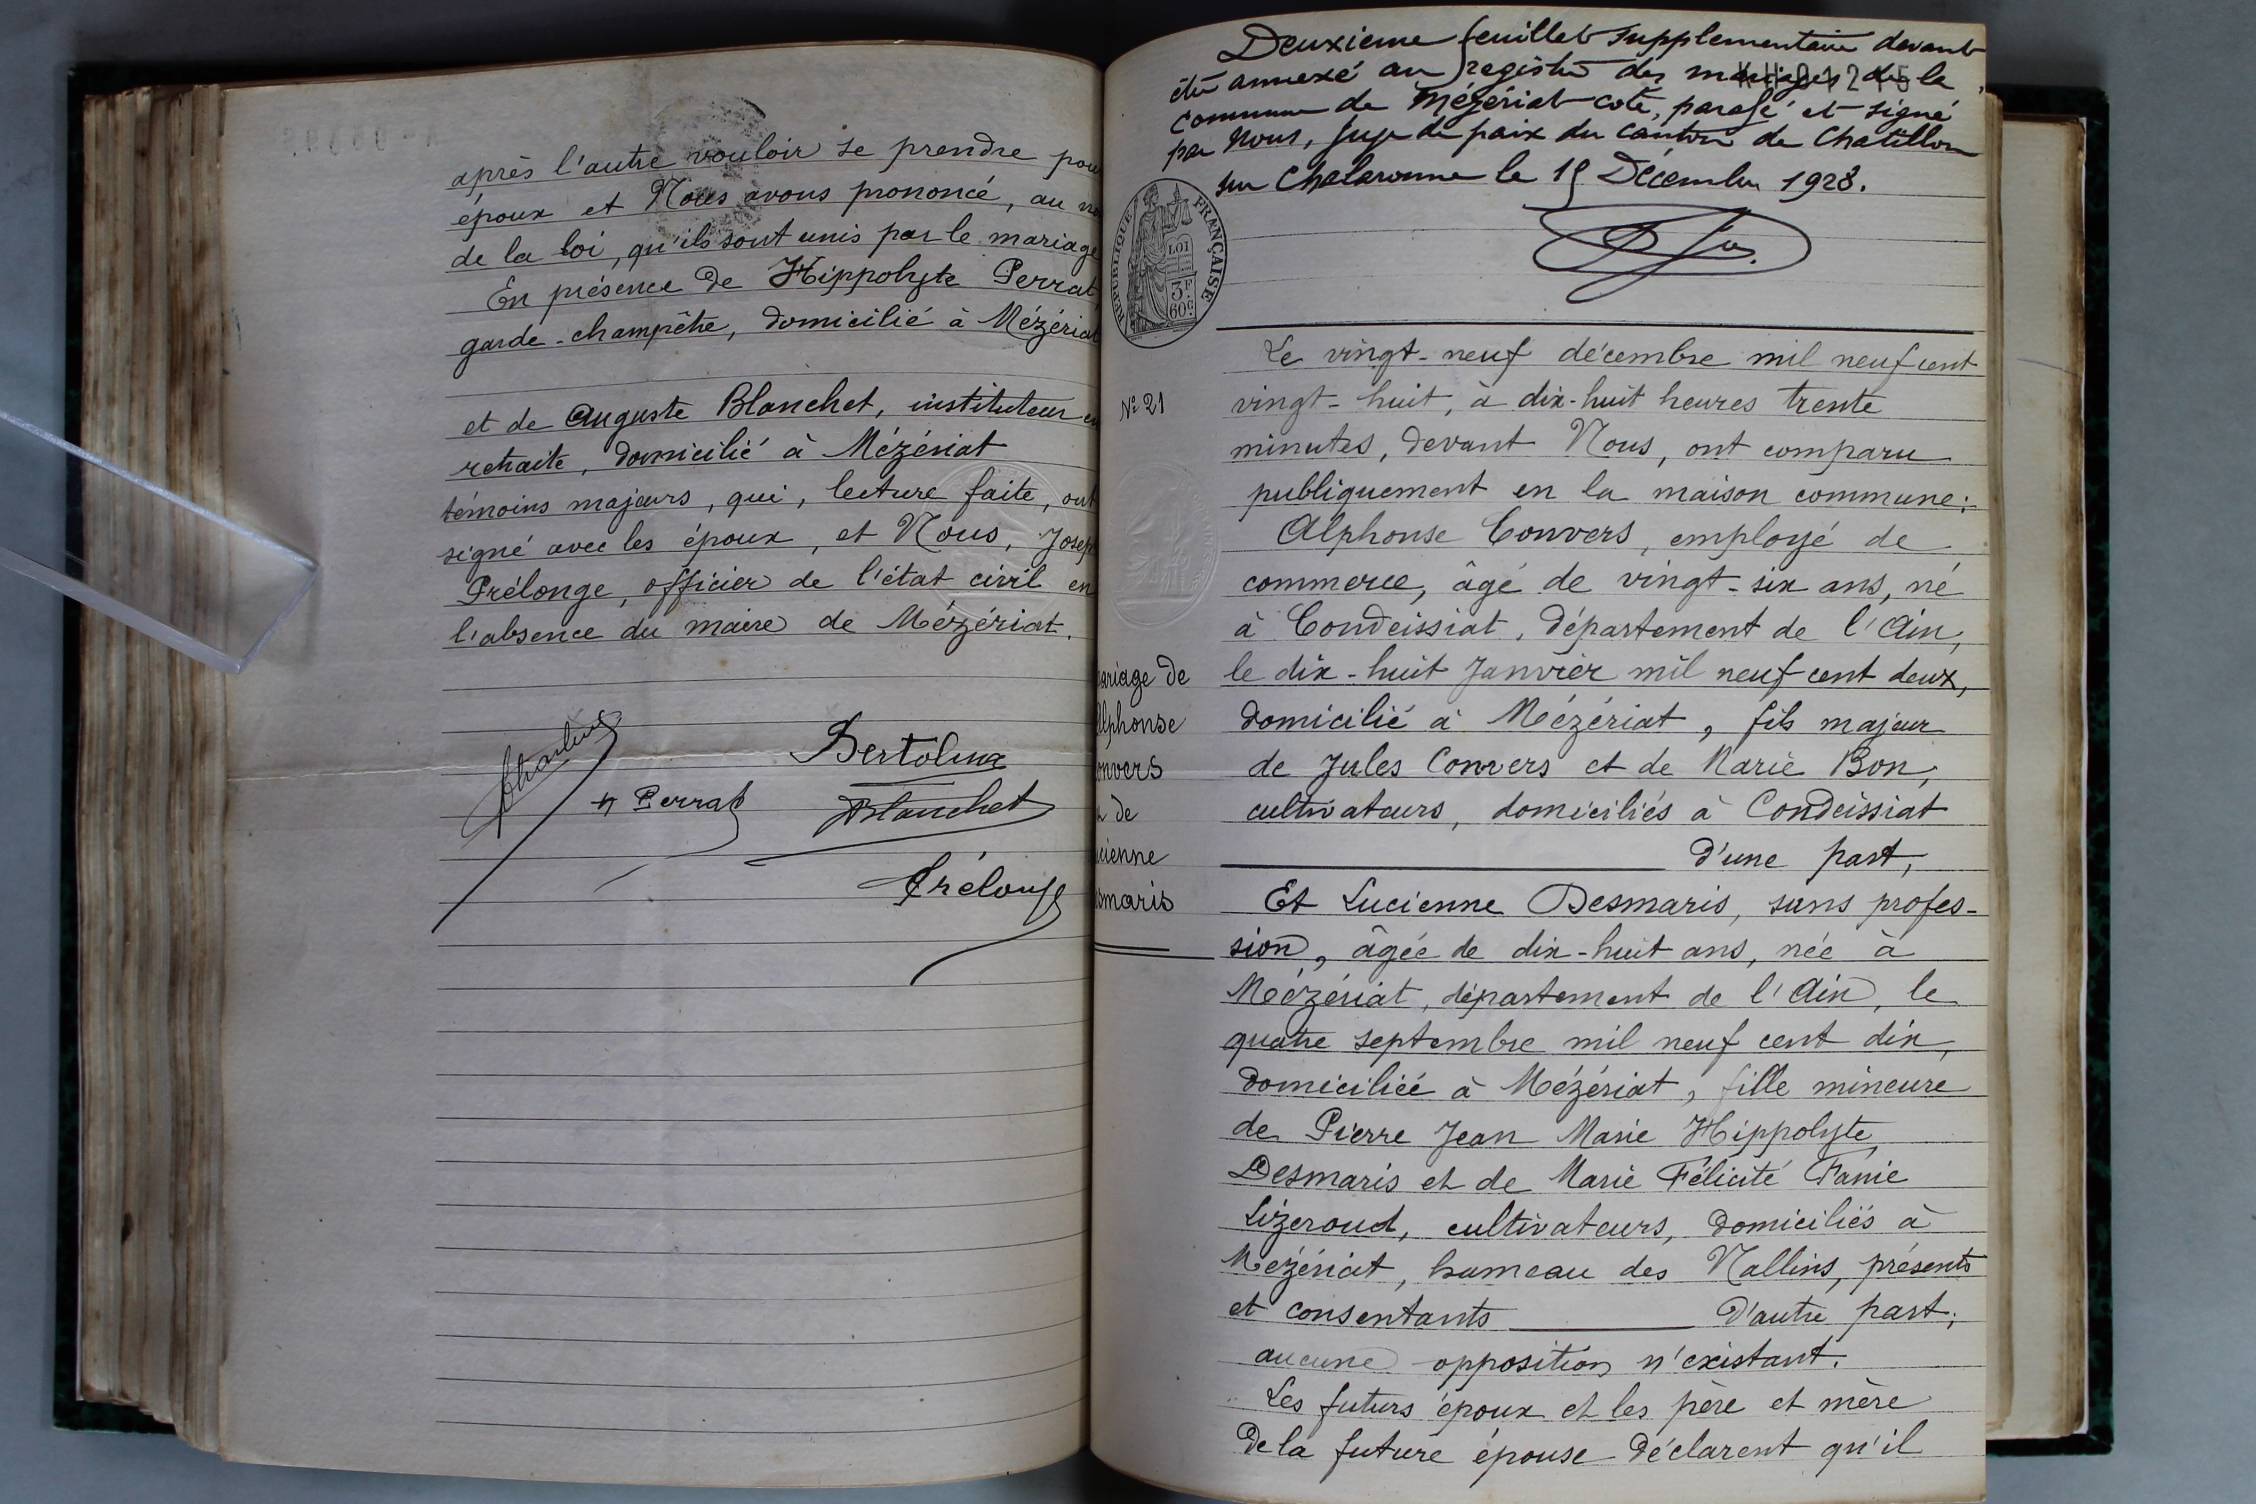 après l'autre vouloir se prendre pour
époux et Nous avons prononcé, au no
de la loi, qu'ils sont unis par le mariage
En présence de Hippolyte Perrat
garde-champêtre, domicilié à Mézériat
et de Auguste Blanchet, instituteur en
retraite, domicilié à Mézériat
témoins majeurs, qui, lecture faite, ont
signé avec les époux, et Nous, Joseph
Prélonge, officier de l'état civil en
l'absence du maire de Mézériat.
Bertolina
H Perrat
Blanchet
Prélonge
Deuxieme feuillet supplementaire devant
être annexé au registre des mariages de la
commune de Mézériat coté, parafé et signé
par Nous, Juge de paix du canton de Chatillon
sur Chalaronne le 15 Décembre 1928.
REPUBLIQUE FRANÇAISE
LOI
3F
60c
Nº 21
ariage de
lphonse
onvers
de
cienne
smaris
Le vingt-neuf décembre mil neuf cent
vingt-huit, à dix-huit heures trente
minutes, devant Nous, ont comparu
publiquement en la maison commune:
Alphonse Convers, employé de
commerce, âgé de vingt-six ans, né
à Condeissiat, département de l'Ain,
le dix-huit Janvier mil neuf cent deux,
domicilié à Mézériat, fils majeur
de Jules Convers et de Marie Bon,
cultivateurs, domiciliés à Condeissiat
d'une part,
Et Lucienne Desmaris, sans profes-
sion, âgée de dix-huit ans, née à
Mézériat, département de l'Ain, le
quatre septembre mil neuf cent dix,
domiciliée à Mézériat, fille mineure
de Pierre Jean Marie Hippolyte
Desmaris et de Marie Félicité Fanie
Lizeroud, cultivateurs, domiciliés à
Mézériat, hameau des Nallins, présents
et consentants d'autre part;
aucune opposition n'existant.
Les futurs époux et les père et mère
de la future épouse déclarent qu'il